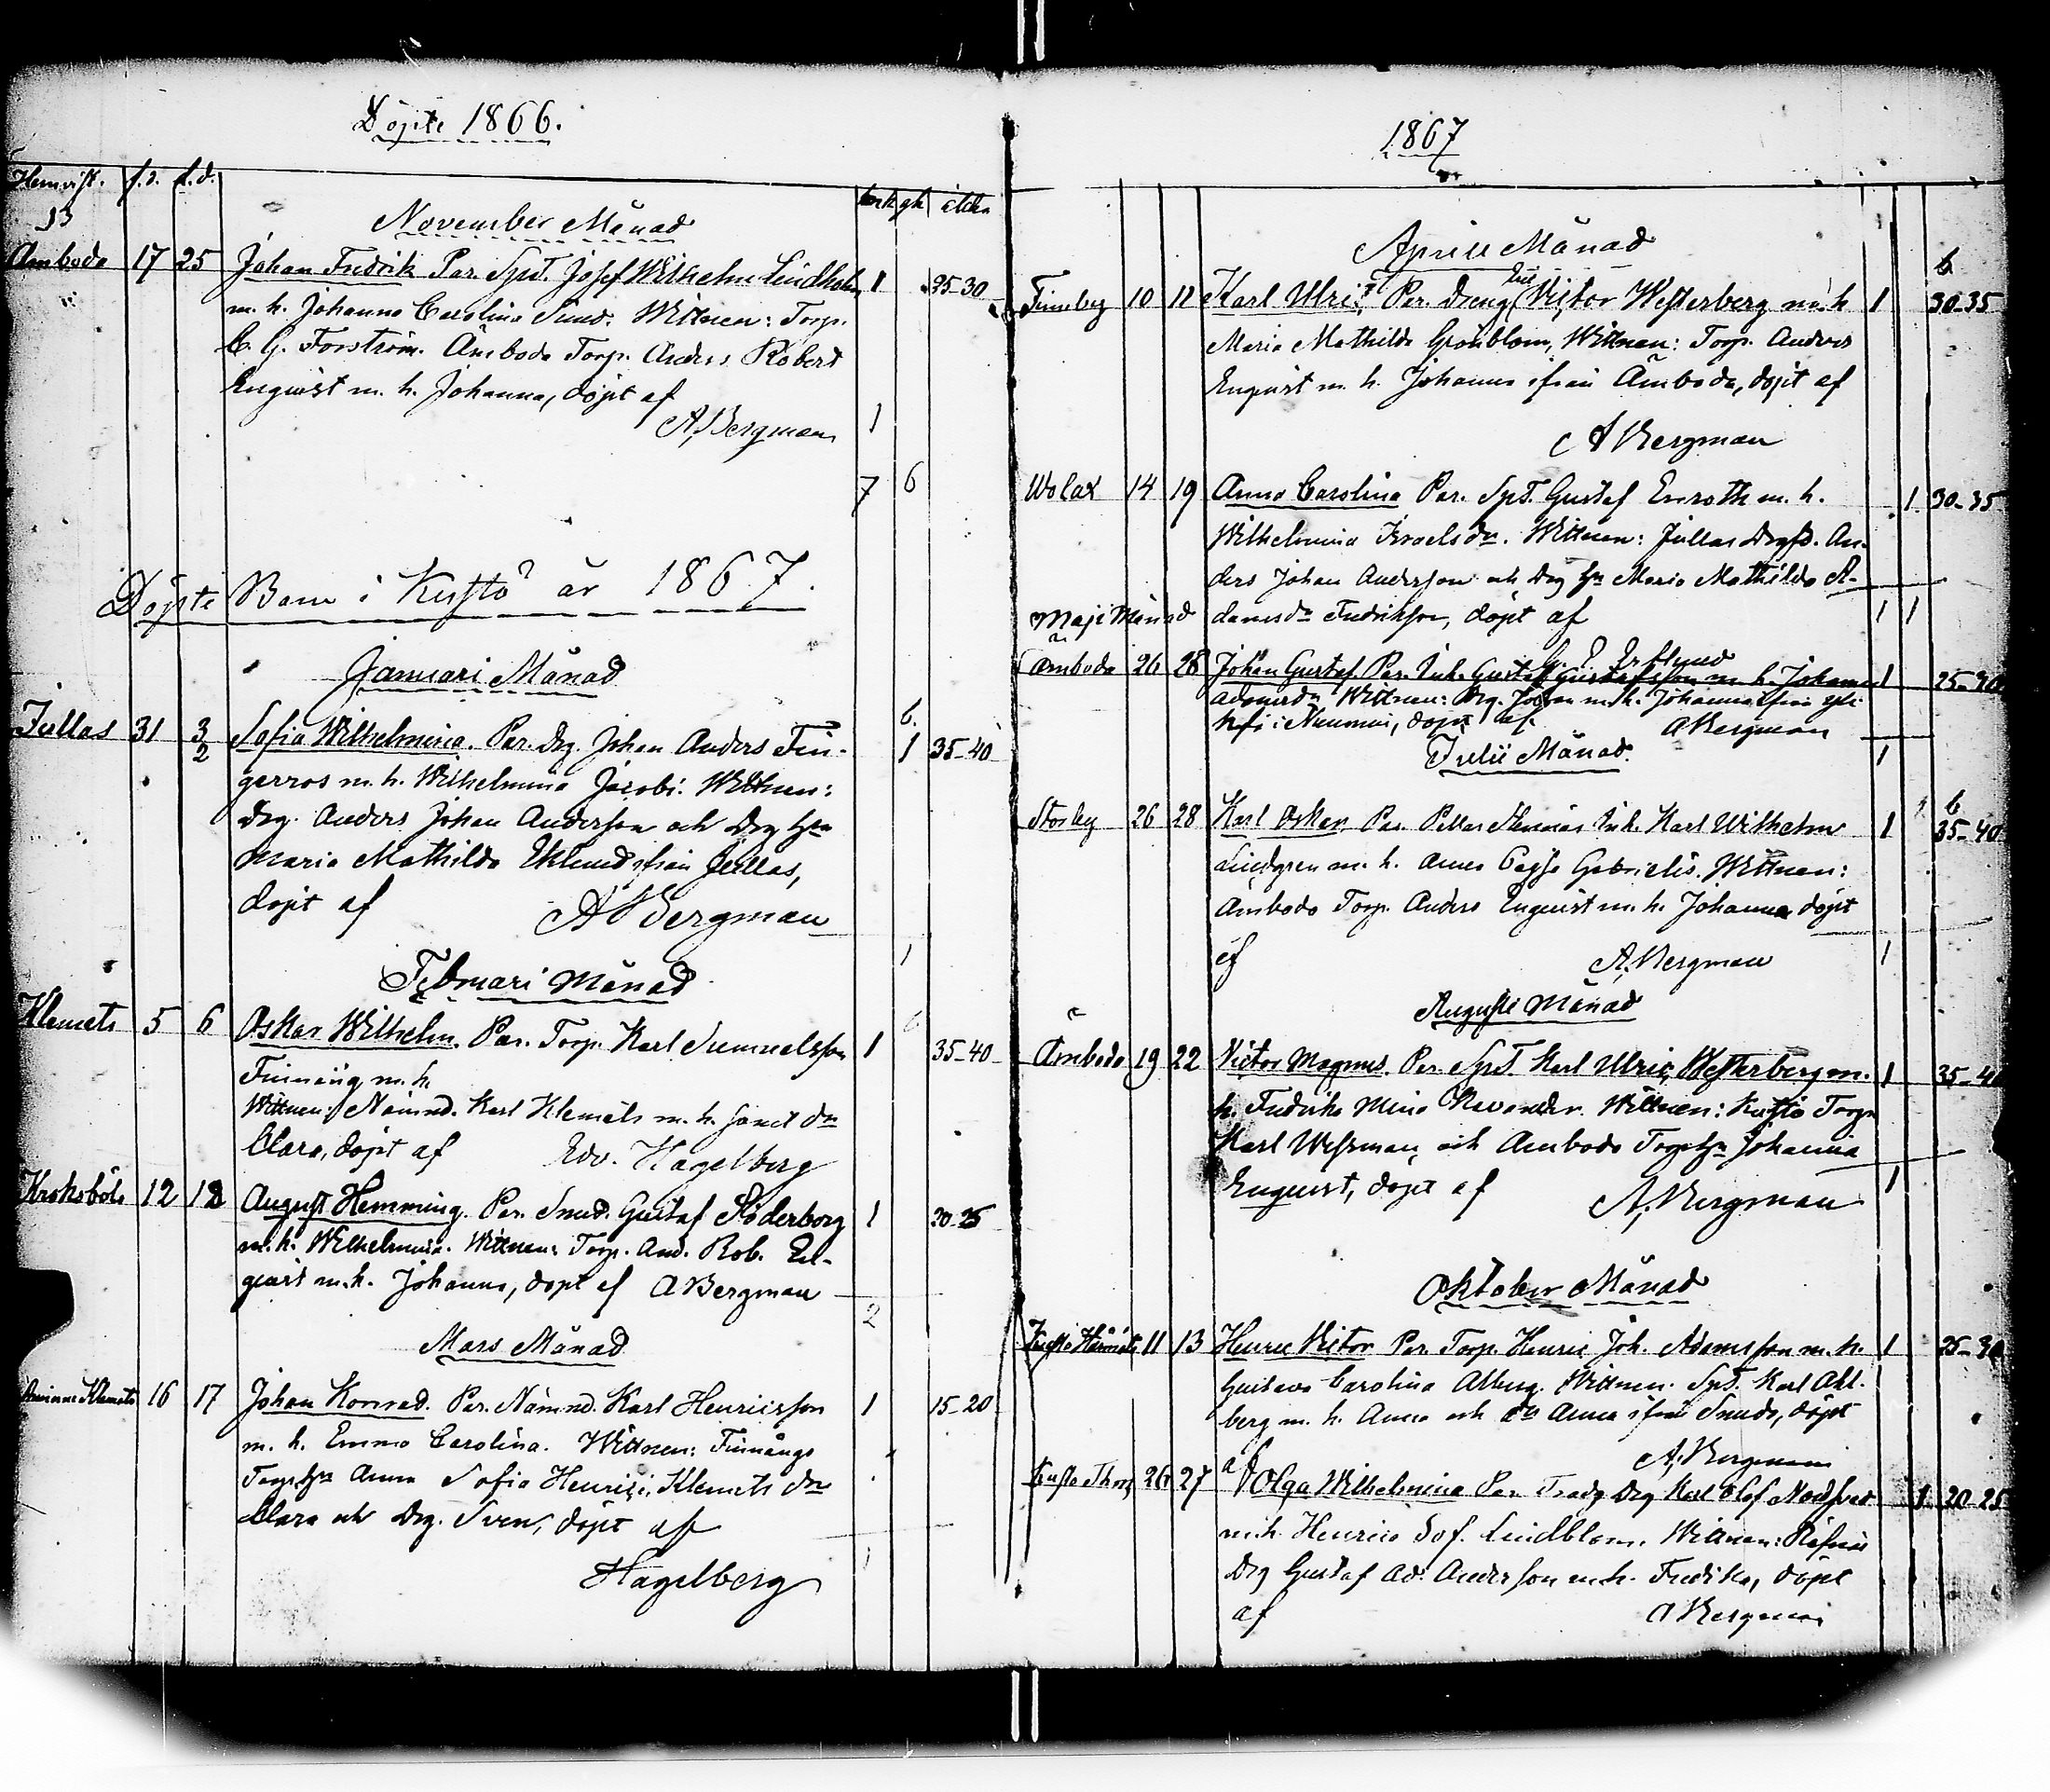 Döpte 1866.
Hemvist. f.d. d.d. mk qk ålder
13
November Månad
Åmboda 17 25 Johan Fredrik Par. Spst. Josef Wilhelm Lindholm 1 25-30
m. h. Johanna Carolina Sund. Wittnen: Torp.
C. G. Forström. Åmboda Torp. Anders Robert
Enquist m. h. Johanna, döpt af
A, Bergman 1
7 6
Döpte Barn i Kustö år 1867.
Januari Månad
Jullas 31 3/2 Sofia Wilhelmina. Par. Drg. Johan Anders Fin- 6. 1 35-40
gerros m. h. Wilhelmina Jacobs: Wittnen:
Drg. Anders Johan Anderson och Drg hn
Maria Mathilda Eklund ifrån Jullas,
döpt af A Bergman
1
Februari Månad
Klemets 5 6 Oskar Wilhelm. Par. Torp. Karl Samuelsson 1 35-40
Finnäng m. h.
Wittnen: Nämnd. Karl Klemets m. h. samt dn
Clara, döpt af Edv. Hagelberg
Kroksböle 12 18 August Hemming. Par. Smed. Gustaf Söderborg 1 20-25
m. h. Wilhelmina. Wittnen: Torp. And. Rob. En-
quist m. h. Johanna, döpt af A Bergman
2
Mars Månad
Klemets 16 17 Johan Konrad. Par. Nämnd. Karl Henricsson 1 15-20
m. h. Emma Carolina. Wittnen: Finnängs
Torp hn Anna Sofia Henrics, Klemets dn
Clara och Drg. Sven, döpt af
Hagelberg
1867
Aprill Månad
Finnby 10 12 Karl Ulric, Par. Dreng Victor Westerberg m. h 1 6 30-35
Maria Mathilda Grönblom, Wittnen: Torp. Anders
Enquist m. h. Johanna ifrån Åmboda, döpt af
A Bergman
Wolax 14 19 Anna Carolina Par. Spst. Gustaf Enroth m. h. 1 30-35
Wilhelmina Israels dr. Wittnen: Jullas Drg. An-
ders Johan Anderson och Drg hn Maria Mathilda A-
damsdr Fredriksson, döpt af 1 1
Maji Månad
Åmboda 26 28 Johan Gustaf Par. Inh. Gustaf Gustafsson m. h. Johanna 1 25-30
Adamsdr Wittnen: Drg. Johan m. h. Johanna ifrån
i Nummi, döpt af. A Bergman
Julii Månad 1
Storby 26 28 Karl Oskar Par. Inh. Karl Wilhelm 1 6 35-40
Lindgren m. h. Anna Cajsa Gabriels. Wittnen:
Åmboda Torp. Anders Enquist m. h. Johanna döpt
af A, Bergman 1
Augusti Månad
Åmboda 19 22 Victor Magnus. Par. Spst. Karl Ulric, Westerberg m. 1 35-40
h. Fredrika Mina Wittnen: Kustö Torp
Karl Wessman och Åmboda Torp hn Johanna
Enquist, döpt af A, Bergman 1
Oktober Månad
Kustö 11 13 Henric Victor Par. Torp. Henric Joh. Adamsson m. h. 1 25-30
Gustava Carolina Alberg. Wittnen. Spst. Karl Ahl-
berg m. h. Anna och dn Anna ifrån Smeds, döpt
af A, Bergman
Kustö 26 27 Olga Wilhelmina Par. Drg Karl Olof 1 20-25
m. h. Henrica Sof. Lindblom. Wittnen:
Drg Gustaf Ad. Andersson m. h. Fredika, döpt
af A Bergman